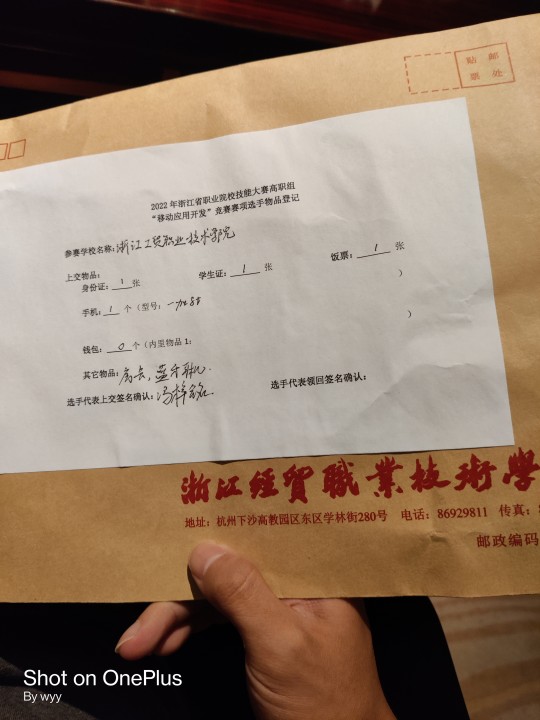 贴 邮
票 处
2022 年浙江省职业院校技能大赛高职组
“移动应用开发”竞赛赛项选手物品登记
参赛学校名称:浙江工贸职业技术学院
上交物品:
身份证: 1 张 学生证: 1 张 饭票: 1 张
手机: 1 个(型号: 一加8T )
钱包: 0 个(内里物品1: )
其它物品: 房卡, 蓝牙耳机.
选手代表上交签名确认: 选手代表领回签名确认:
浙江经贸職業技術學
地址: 杭州下沙高教园区东区学林街280号 电话: 86929811 传真:
邮政编码
Shot on OnePlus
By wyy